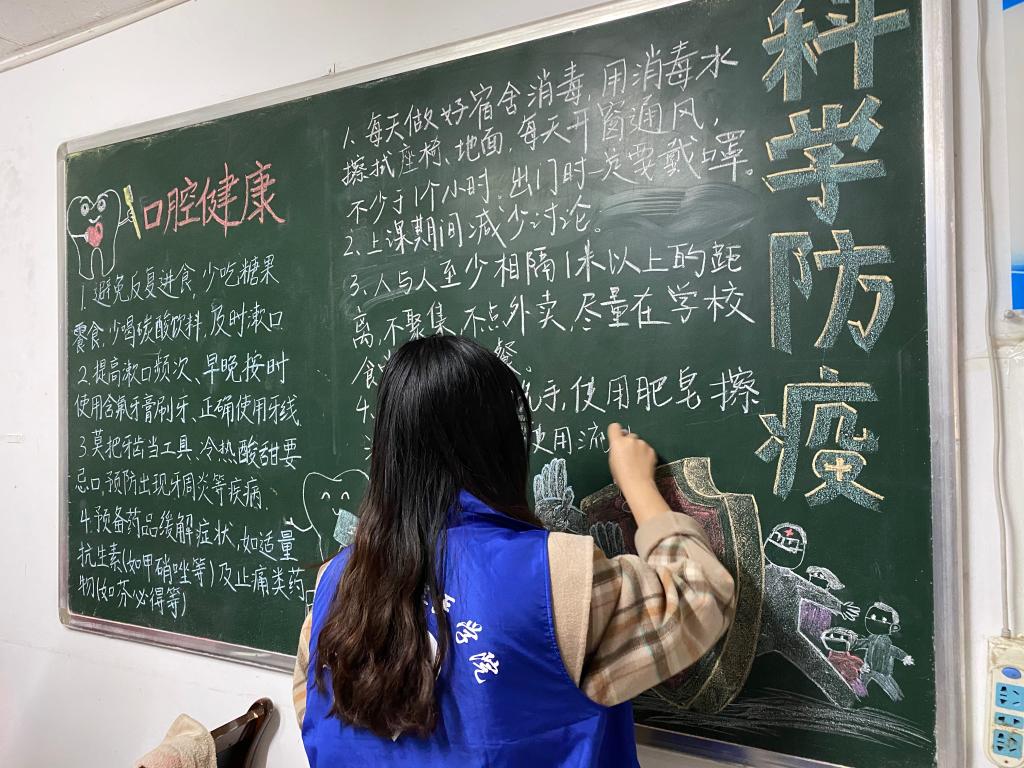 口腔健康
1.避免反复进食,少吃糖果
零食,少喝碳酸饮料,及时漱口
2.提高漱口频次、早晚按时
使用含氟牙膏刷牙、正确使用牙线
3.莫把牙齿当工具、冷热酸甜要
忌口,预防出现牙周炎等疾病.
4.预备药品缓解症状,如适量
抗生素(如甲硝唑等)及止痛类药
物(如芬必得等)
1.每天做好宿舍消毒,用消毒水
擦拭座椅、地面,每天开窗通风,
不少于1个小时.出门时一定要戴口罩。
2.上课期间减少讨论。
3.人与人至少相隔1米以上的距
离,不聚集,不点外卖,尽量在学校
食 餐。
4. 洗手,使用肥皂擦
使用流
科学防疫
学院